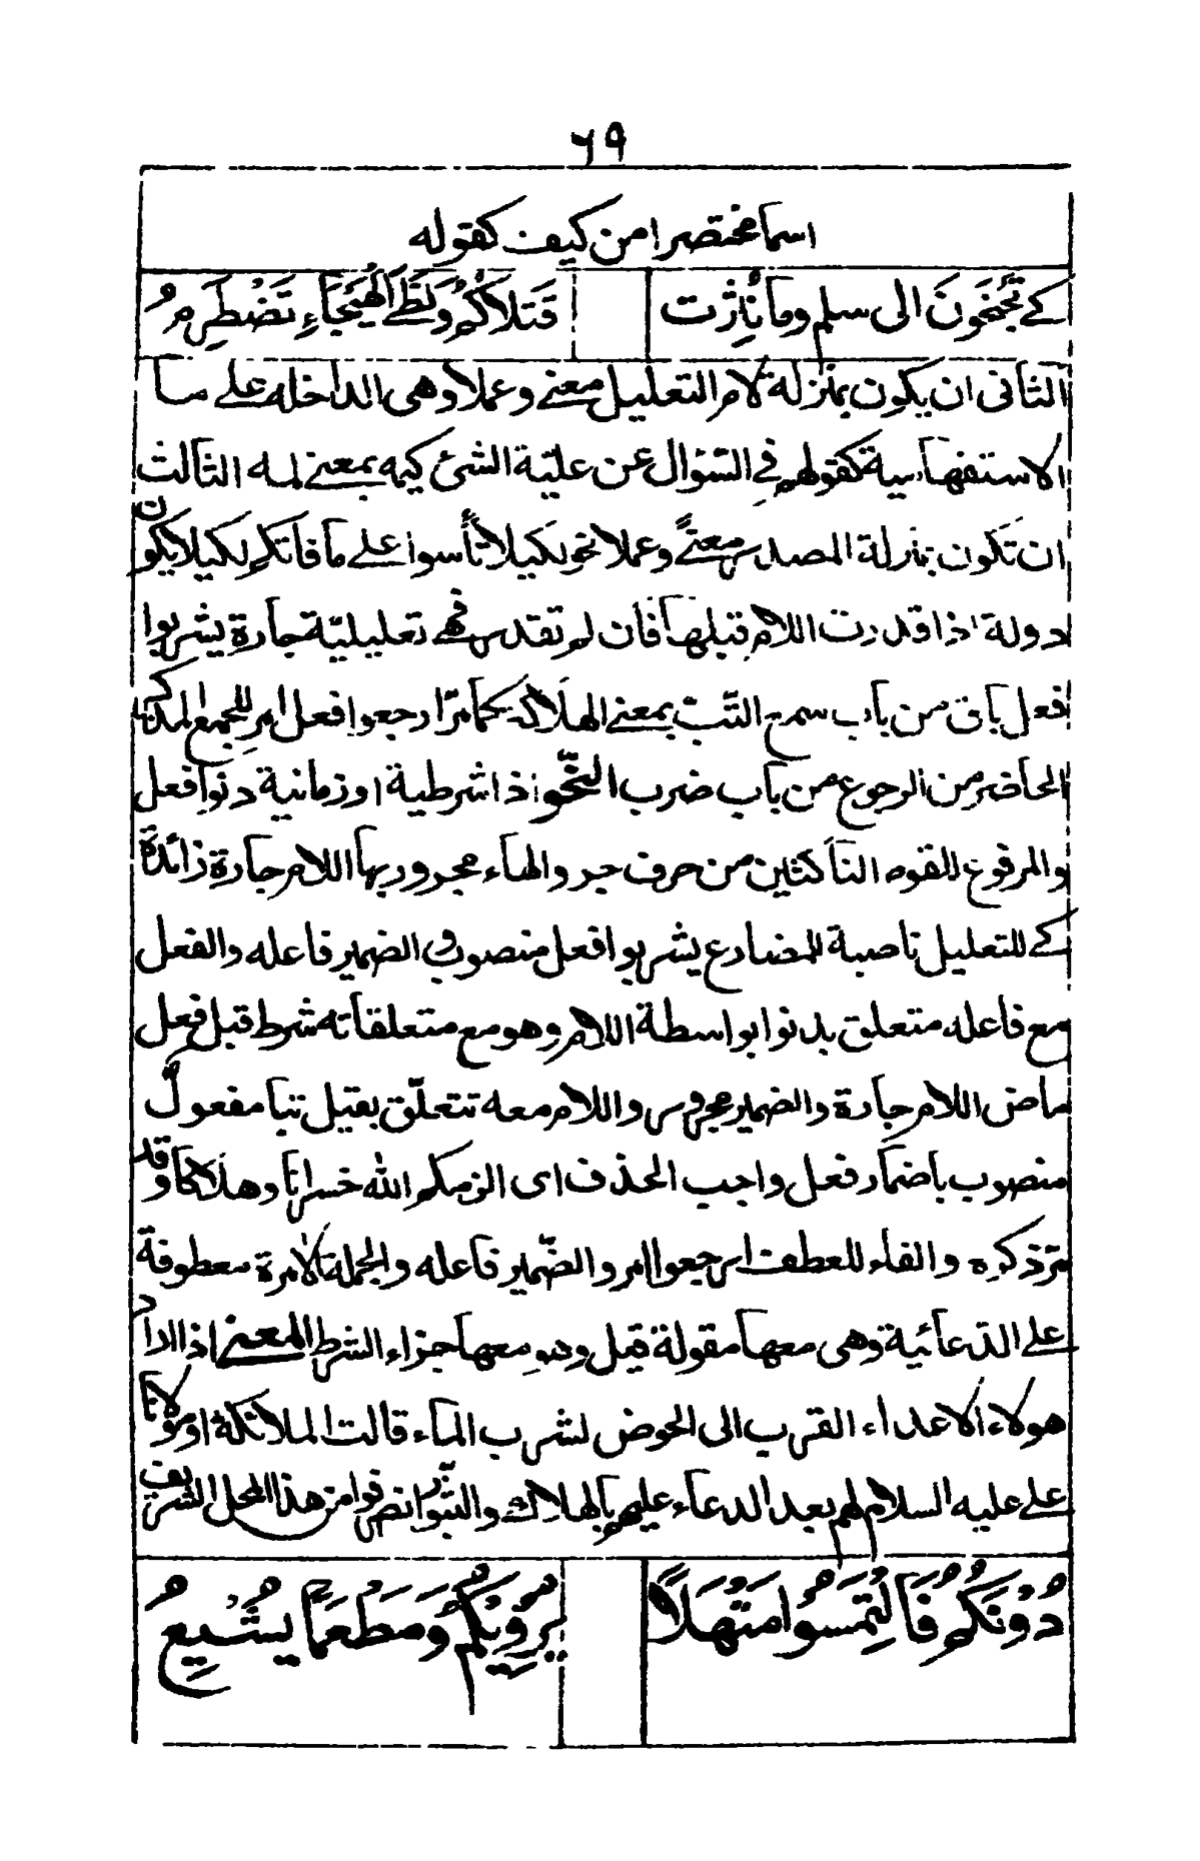 ٦٩
اسما مختصرا من كيف كقوله
كے تَجْنَحُونَ الى سلم وما ثُئِرَت قَتلاكُمُ ولَظَے الهَيْجَاءِ تَضْطَرِمُ
الثانى ان يكون بمنزلة لام التعليل معنے وعملا وهى الداخله علے ما
الاستفهامية كقولهم فے السّؤال عن عليّة الشئ كيمه بمعنے لمه الثالث
ان تكون بمنزلة المصدر معنًے وعملا نحو لكيلا تأسوا علے ما فاتكم لكيلا يكون
دولة اذا قدرت اللام قبلها فان لم تقدر فهے تعليليّة جارة يشربوا
فعل يأتى من باب سمع التّبّ بمعنے الهلاك كما مرّ ارجعوا فعل امر للجمع المذكر
الحاضر من الرجوع من باب ضرب النّحو اذا شرطية او زمانية دنوا فعل
والمرفوع للقوم الناكثين من حرف جر والهاء مجرور بها اللام جارة زائدة
كے للتعليل ناصبة للمضارع يشربوا فعل منصوب والضمير فاعله والفعل
مع فاعله متعلق بدنوا بواسطة اللام وهو مع متعلقاته شرط قبل فعل
ماض اللام جارة والضمير مجرور واللام معه تتعلّق بقيل تبا مفعولٌ
منصوب باضمار فعل واجب الحذف اى الزمكم الله خسرانا وهلاكا وقد
مرّ ذكره والفاء للعطف ارجعوا امر والضّمير فاعله والجملة الامرة معطوفة
علے الدعائية وهى معها مقولة قيل وهو معها جزاء الشرط المعنے اذا اراد
هولاء الاعداء القرب الى الحوض لشرب الماء قالت الملائكة او مولانا
علے عليه السلام لهم بعد الدعاء عليهم بالهلاك والثبور انصرفوا من هذا المحل الشريف
دُوْنَكُمُ فَالْتَمِسُوا مَنْهَلًا يُرْوِيْكُمُ وَمَطْعَمًا يُشْبِعُ